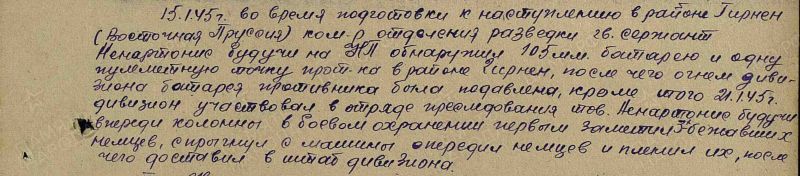 15.1.45г. во время подготовки к наступлению в районе Гирнен
(Восточная Пруссия) ком-р отделения разведки гв. сержант
Ненартонис будучи на НП обнаружил 105 мм. батарею и одну
пулеметную точку прот-ка в районе Гирнен, после чего огнем диви-
зиона батарея противника была подавлена, кроме того 21.1.45г.
дивизион участвовал в отряде преследования тов. Ненартонис будучи
впереди колонны в боевом охранении первым заметил 3х бежавших
немцев, спрыгнул с машины опередил немцев и пленил их, после
чего доставил в штаб дивизиона.